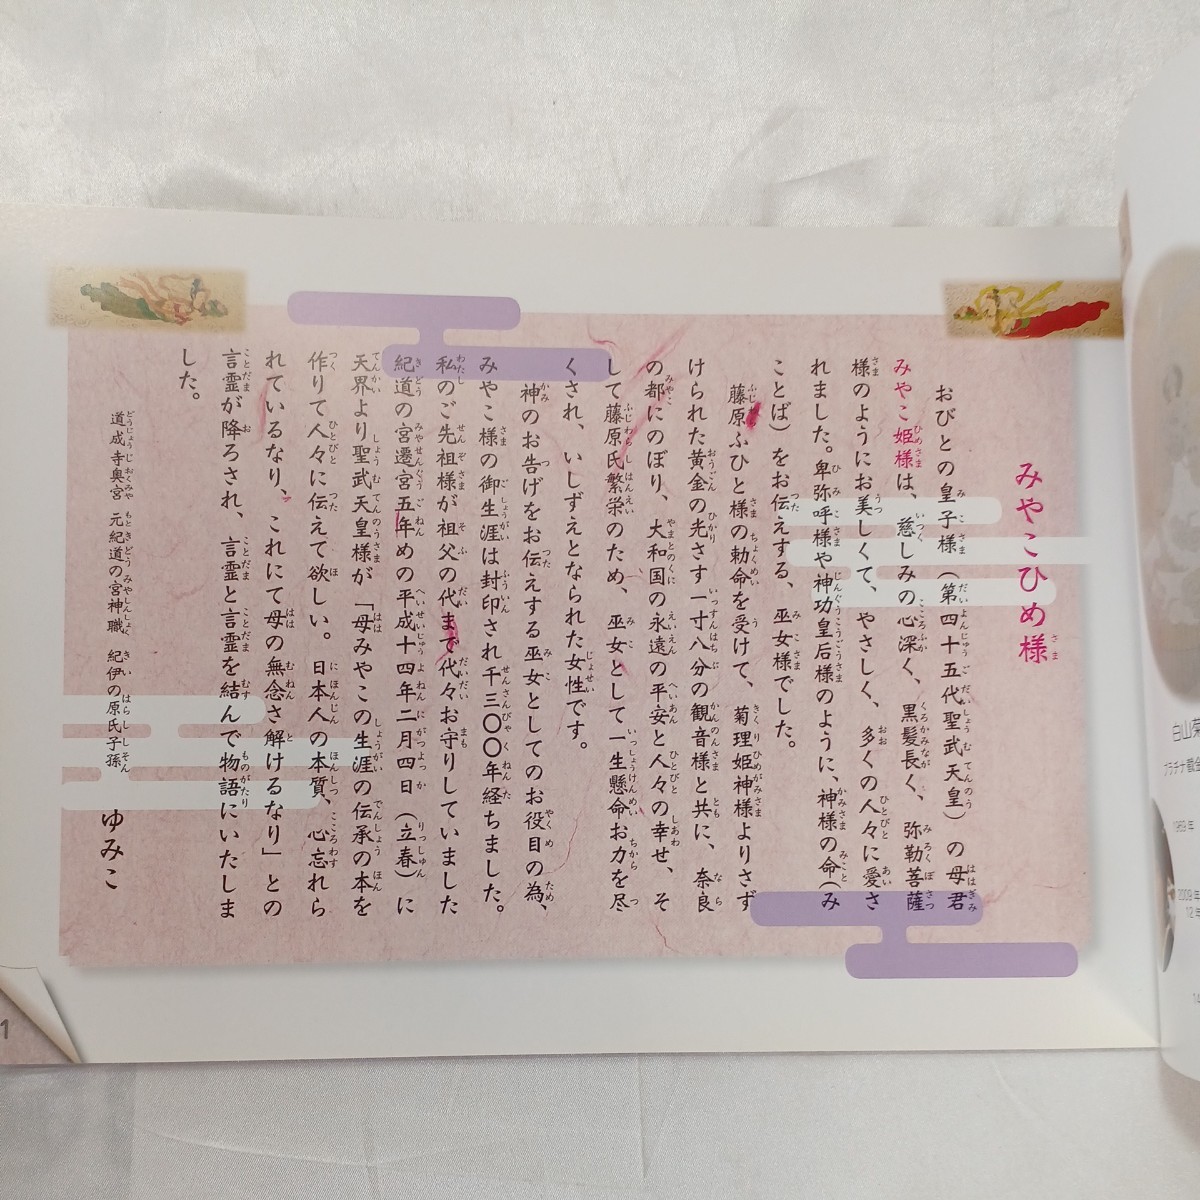 みやこひめ様
おびとの皇子様（第四十五代聖武天皇）の母君
みやこ姫様は、慈しみの心深く、黒髪長く、弥勒菩薩
様のようにお美しくて、やさしく、多くの人々に愛さ
れました。卑弥呼様や神功皇后様のように、神様の命（み
ことば）をお伝えする、巫女様でした。
藤原ふひと様の勅命を受けて、菊理姫神様よりさず
けられた黄金の光さす一寸八分の観音様と共に、奈良
の都にのぼり、大和国の永遠の平安と人々の幸せ、そ
して藤原氏繁栄のため、巫女として一生懸命お力を尽
くされ、いしずえとなられた女性です。
神のお告げをお伝えする巫女としてのお役目の為、
みやこ様の御生涯は封印され千三〇〇年経ちました。
私のご先祖様が祖父の代まで代々お守りしていました
紀道の宮遷宮五年めの平成十四年二月四日（立春）に
天界より聖武天皇様が「母みやこの生涯の伝承の本を
作りて人々に伝えて欲しい。日本人の本質、心忘れら
れているなり、これにて母の無念さ解けるなり」との
言霊が降ろされ、言霊と言霊を結んで物語にいたしま
した。
道成寺奥宮 元紀道の宮神職 紀伊の原氏子孫 ゆみこ
1
プラチナ
1959年
2009年
12年